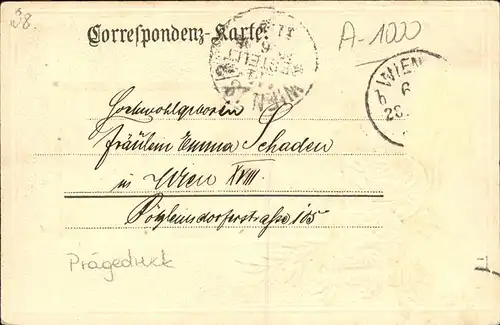 38.
Correspondenz-Karte.
A-1000
WIEN
BESTELLT
WIEN
6
28.
Hochwohlgeboren
Fräulein Emma Schaden
in Wien XVIII.
Pötzleinsdorferstrasse 105
Prägedruck